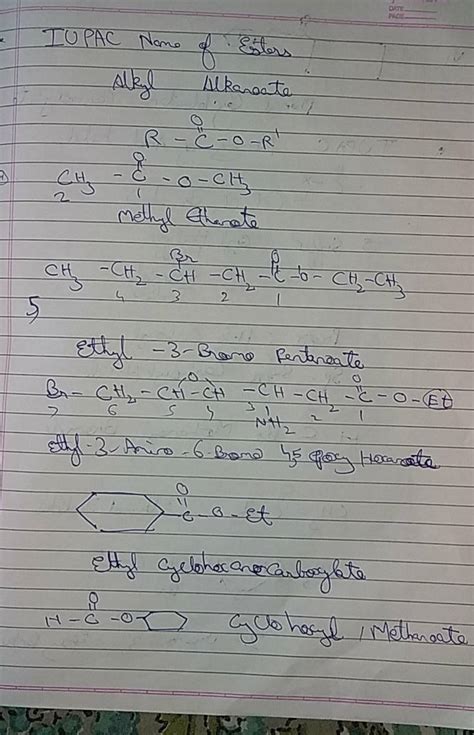 DATE
PAGE
IUPAC Name of Esters
Alkyl Alkanoate
O
R - C - O - R'
O
CH3 - C - O - CH3
2 1
Methyl Ethanoate
Br O
CH3 - CH2 - CH - CH2 - C - O - CH2 - CH3
5 4 3 2 1
Ethyl - 3 - Bromo Pentanoate
O O
Br - CH2 - CH - CH - CH - CH2 - C - O - Et
7 6 5 4 3 2 1
NH2
Ethyl - 3 - Amino - 6 - Bromo 4,5 epoxy Hexanoate
O
C - O - Et
Ethyl cyclohexanecarboxylate
O
H - C - O -
Cyclohexyl, Methanoate